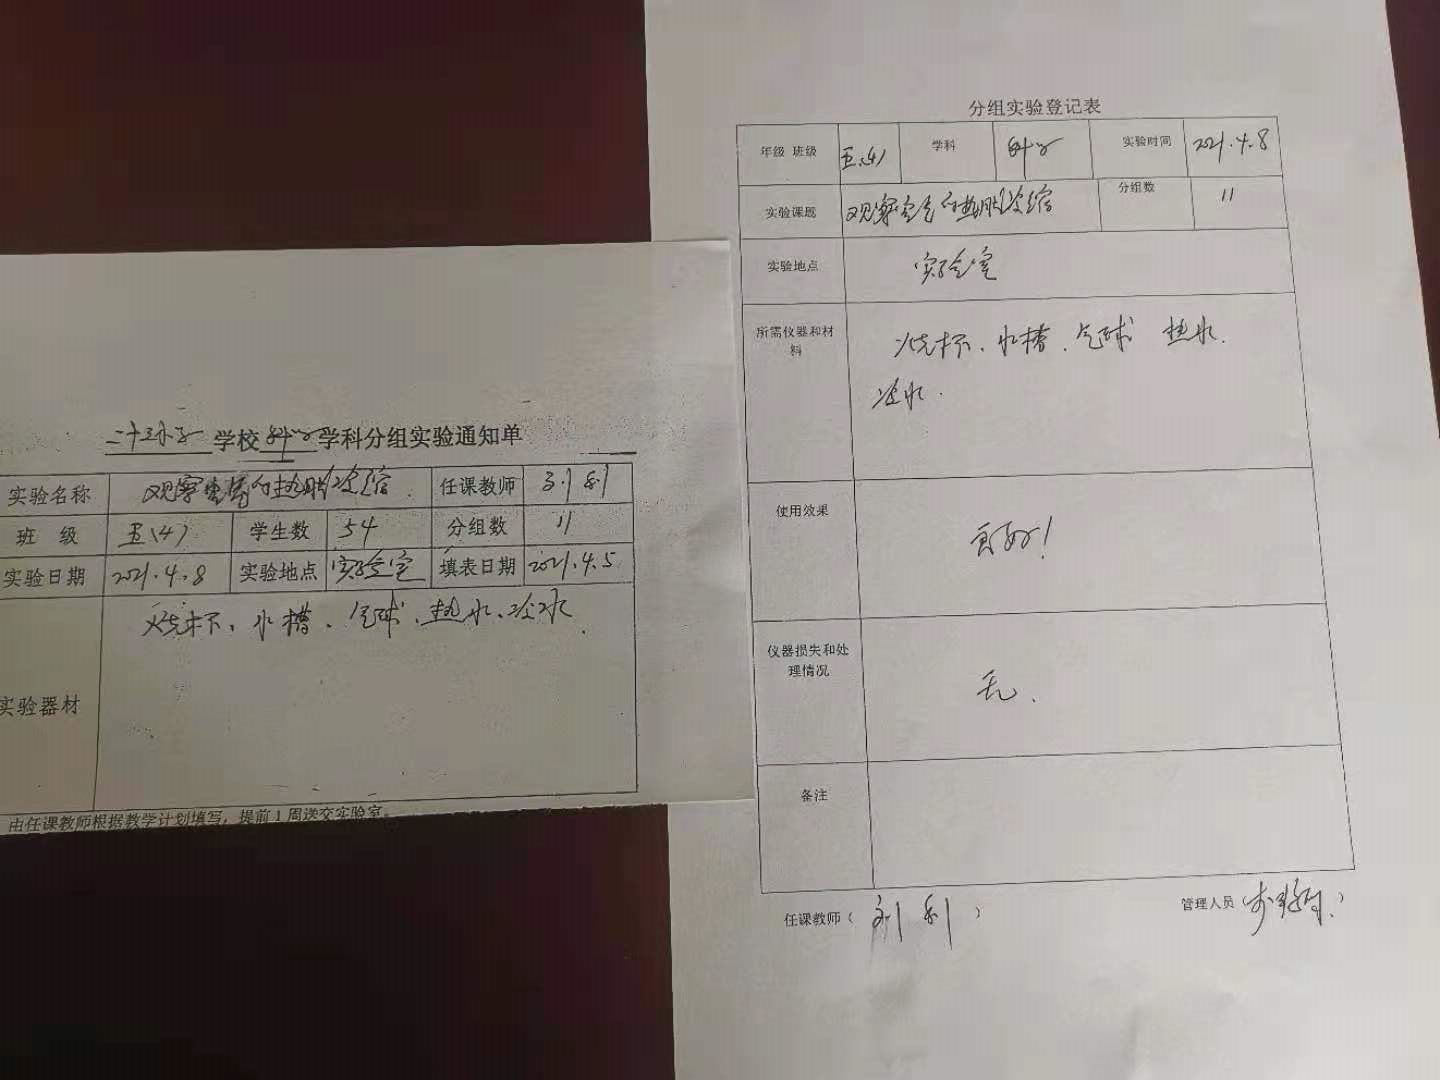 学校科学学科分组实验通知单
实验名称 观察空气的热胀冷缩 任课教师 刘利
班 级 五(4) 学生数 54 分组数 11
实验日期 2021.4.8 实验地点 实验室 填表日期 2021.4.5
实验器材 烧杯、水槽、气球、热水、冷水.
由任课教师根据教学计划填写，提前1周送交实验室。
分组实验登记表
年级 班级 五(4) 学科 科学 实验时间 2021.4.8
实验课题 观察空气的热胀冷缩 分组数 11
实验地点 实验室
所需仪器和材料 烧杯、水槽、气球 热水.
冷水.
使用效果 良好!
仪器损失和处理情况 无.
备注
任课教师( 刘利 ) 管理人员( )